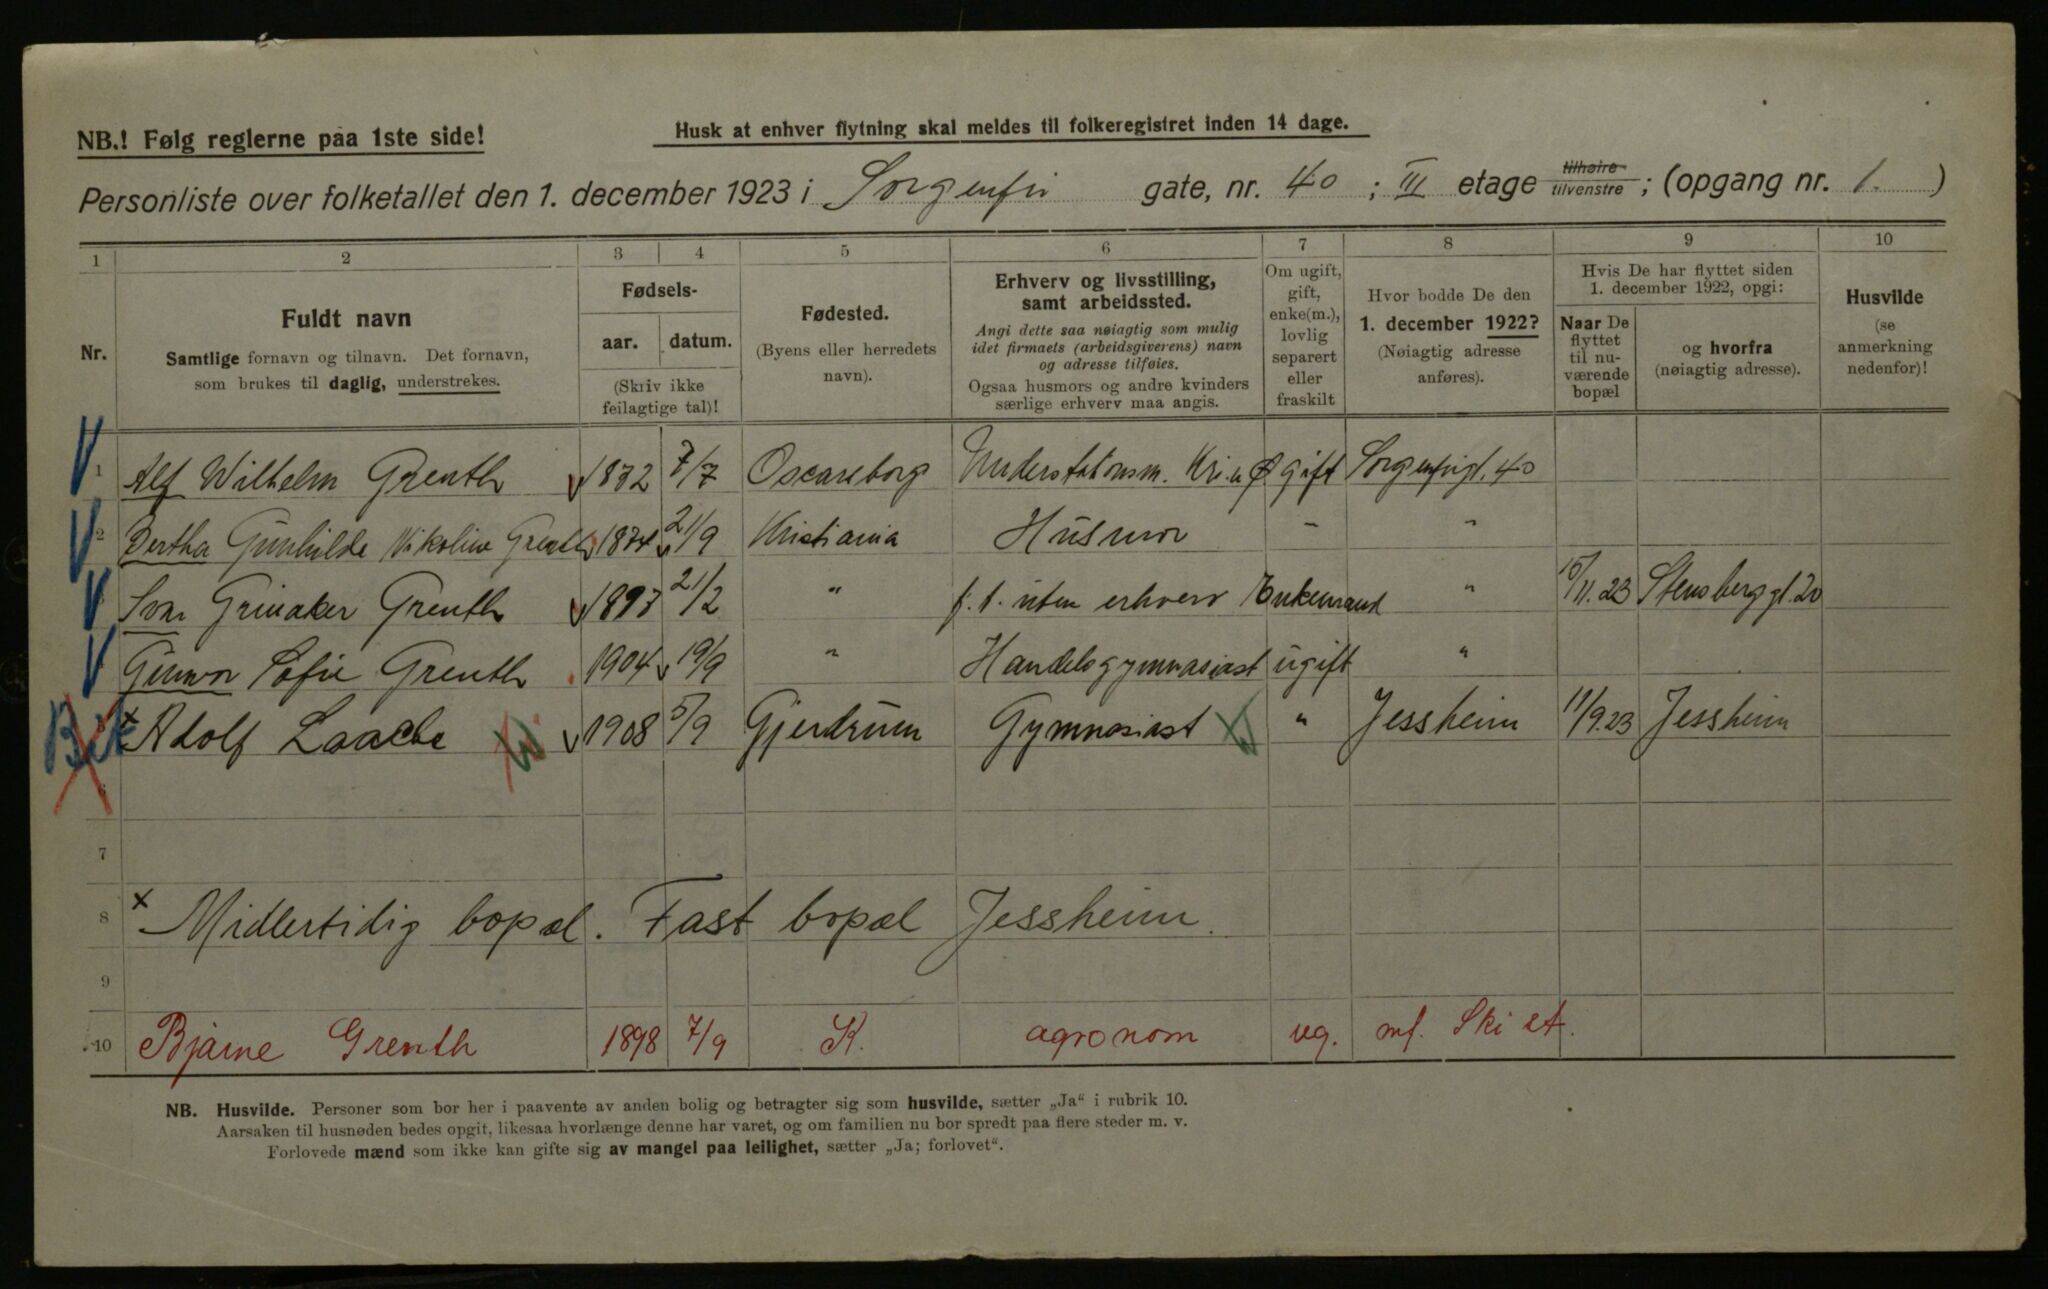 NB.! Følg reglerne paa 1ste side!
Husk at enhver flytning skal meldes til folkeregistret inden 14 dage.
Personliste over folketallet den 1. december 1923 i Sorgenfri gate, nr. 40 ; III etage tilhøire tilvenstre ; (opgang nr. 1. )
1 2 3 4 5 6 7 8 9 10
Nr.
Fuldt navn
Samtlige fornavn og tilnavn. Det fornavn,
som brukes til daglig, understrekes.
Fødsels-
aar. datum.
(Skriv ikke
feilagtige tal)!
Fødested.
(Byens eller herredets
navn).
Erhverv og livsstilling,
samt arbeidssted.
Angi dette saa nøiagtig som mulig
idet firmaets (arbeidsgiverens) navn
og adresse tilføies.
Ogsaa husmors og andre kvinders
særlige erhverv maa angis.
Om ugift,
gift,
enke(m.),
lovlig
separert
eller
fraskilt
Hvor bodde De den
1. december 1922?
(Nøiagtig adresse
anføres).
Hvis De har flyttet siden
1. december 1922, opgi:
Naar De
flyttet
til nu-
værende
bopæl
og hvorfra
(nøiagtig adresse).
Husvilde
(se
anmerkning
nedenfor)!
1 Alf Wilhelm Grenth 1872 7/7 Oscarsborg Understationsm. Kri. gift Sorgenfrigt. 40
2 Bertha Gunhilde Nikoline Grenth 1874 21/9 Kristiania Husmor " "
Grinaker Grenth 1897 21/2 " f. t. uten erhverv Enkemand " 15/11.23 Stensberggt. 20
Gunvor Sofie Grenth 1904 19/9 " Handelsgymnasiast ugift "
x Adolf Laache 1908 5/9 Gjerdrum Gymnasiast " Jessheim 11/9.23 Jessheim
6
7
8 x Midlertidig bopæl. Fast bopæl Jessheim.
9
10 Bjarne Grenth 1898 7/9 K. agronom ug. mf. Ski st.
NB. Husvilde. Personer som bor her i paavente av anden bolig og betragter sig som husvilde, sætter „Ja“ i rubrik 10.
Aarsaken til husnøden bedes opgit, likesaa hvorlænge denne har varet, og om familien nu bor spredt paa flere steder m. v.
Forlovede mænd som ikke kan gifte sig av mangel paa leilighet, sætter „Ja; forlovet“.